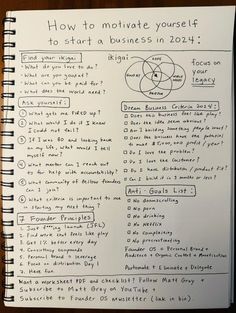 How to motivate yourself
to start a business in 2024:
Find your ikigai
- What do you love to do?
- What are you good at?
- What can you be paid for?
- What does the world need?
ikigai
focus on
your
legacy
Ask yourself:
1 What gets me FIRED up?
2 What would I do if I knew
I could not fail?
3 If I was 80 and looking back
on my life, what would I tell
myself now?
4 What mentor can I reach out
to for help with accountability?
5 What community of fellow founders
can I join?
6 What criteria is important to me
starting my next thing?
7 Founder Principles
1. Just f**ing launch (JFL)
2. Find work that feels like play
3. Get 1% better every day
4. Consistency compounds
5. Personal brand = leverage
6. Focus on distribution Day 1
7. Have fun
Dream Business Criteria 2024:
Does this business feel like play?
Does the idea seem obvious?
Am I building something people want?
Does the business have the potential
to make $100M profit / year?
Do I love the problem?
Do I love the customer?
Do I have distribution / product fit?
Can I build it in 3 months or less?
Anti-Goals List:
No doomscrolling
No porn
No drinking
No netflix
No complaining
No procrastinating
Founder OS = Personal Brand +
Audience + Organic Content + Monetization
Automate + Eliminate + Delegate
Want a worksheet PDF and checklist? Follow Matt Gray +
Subscribe to Matt Gray on YouTube +
Subscribe to Founder OS newsletter (link in bio).